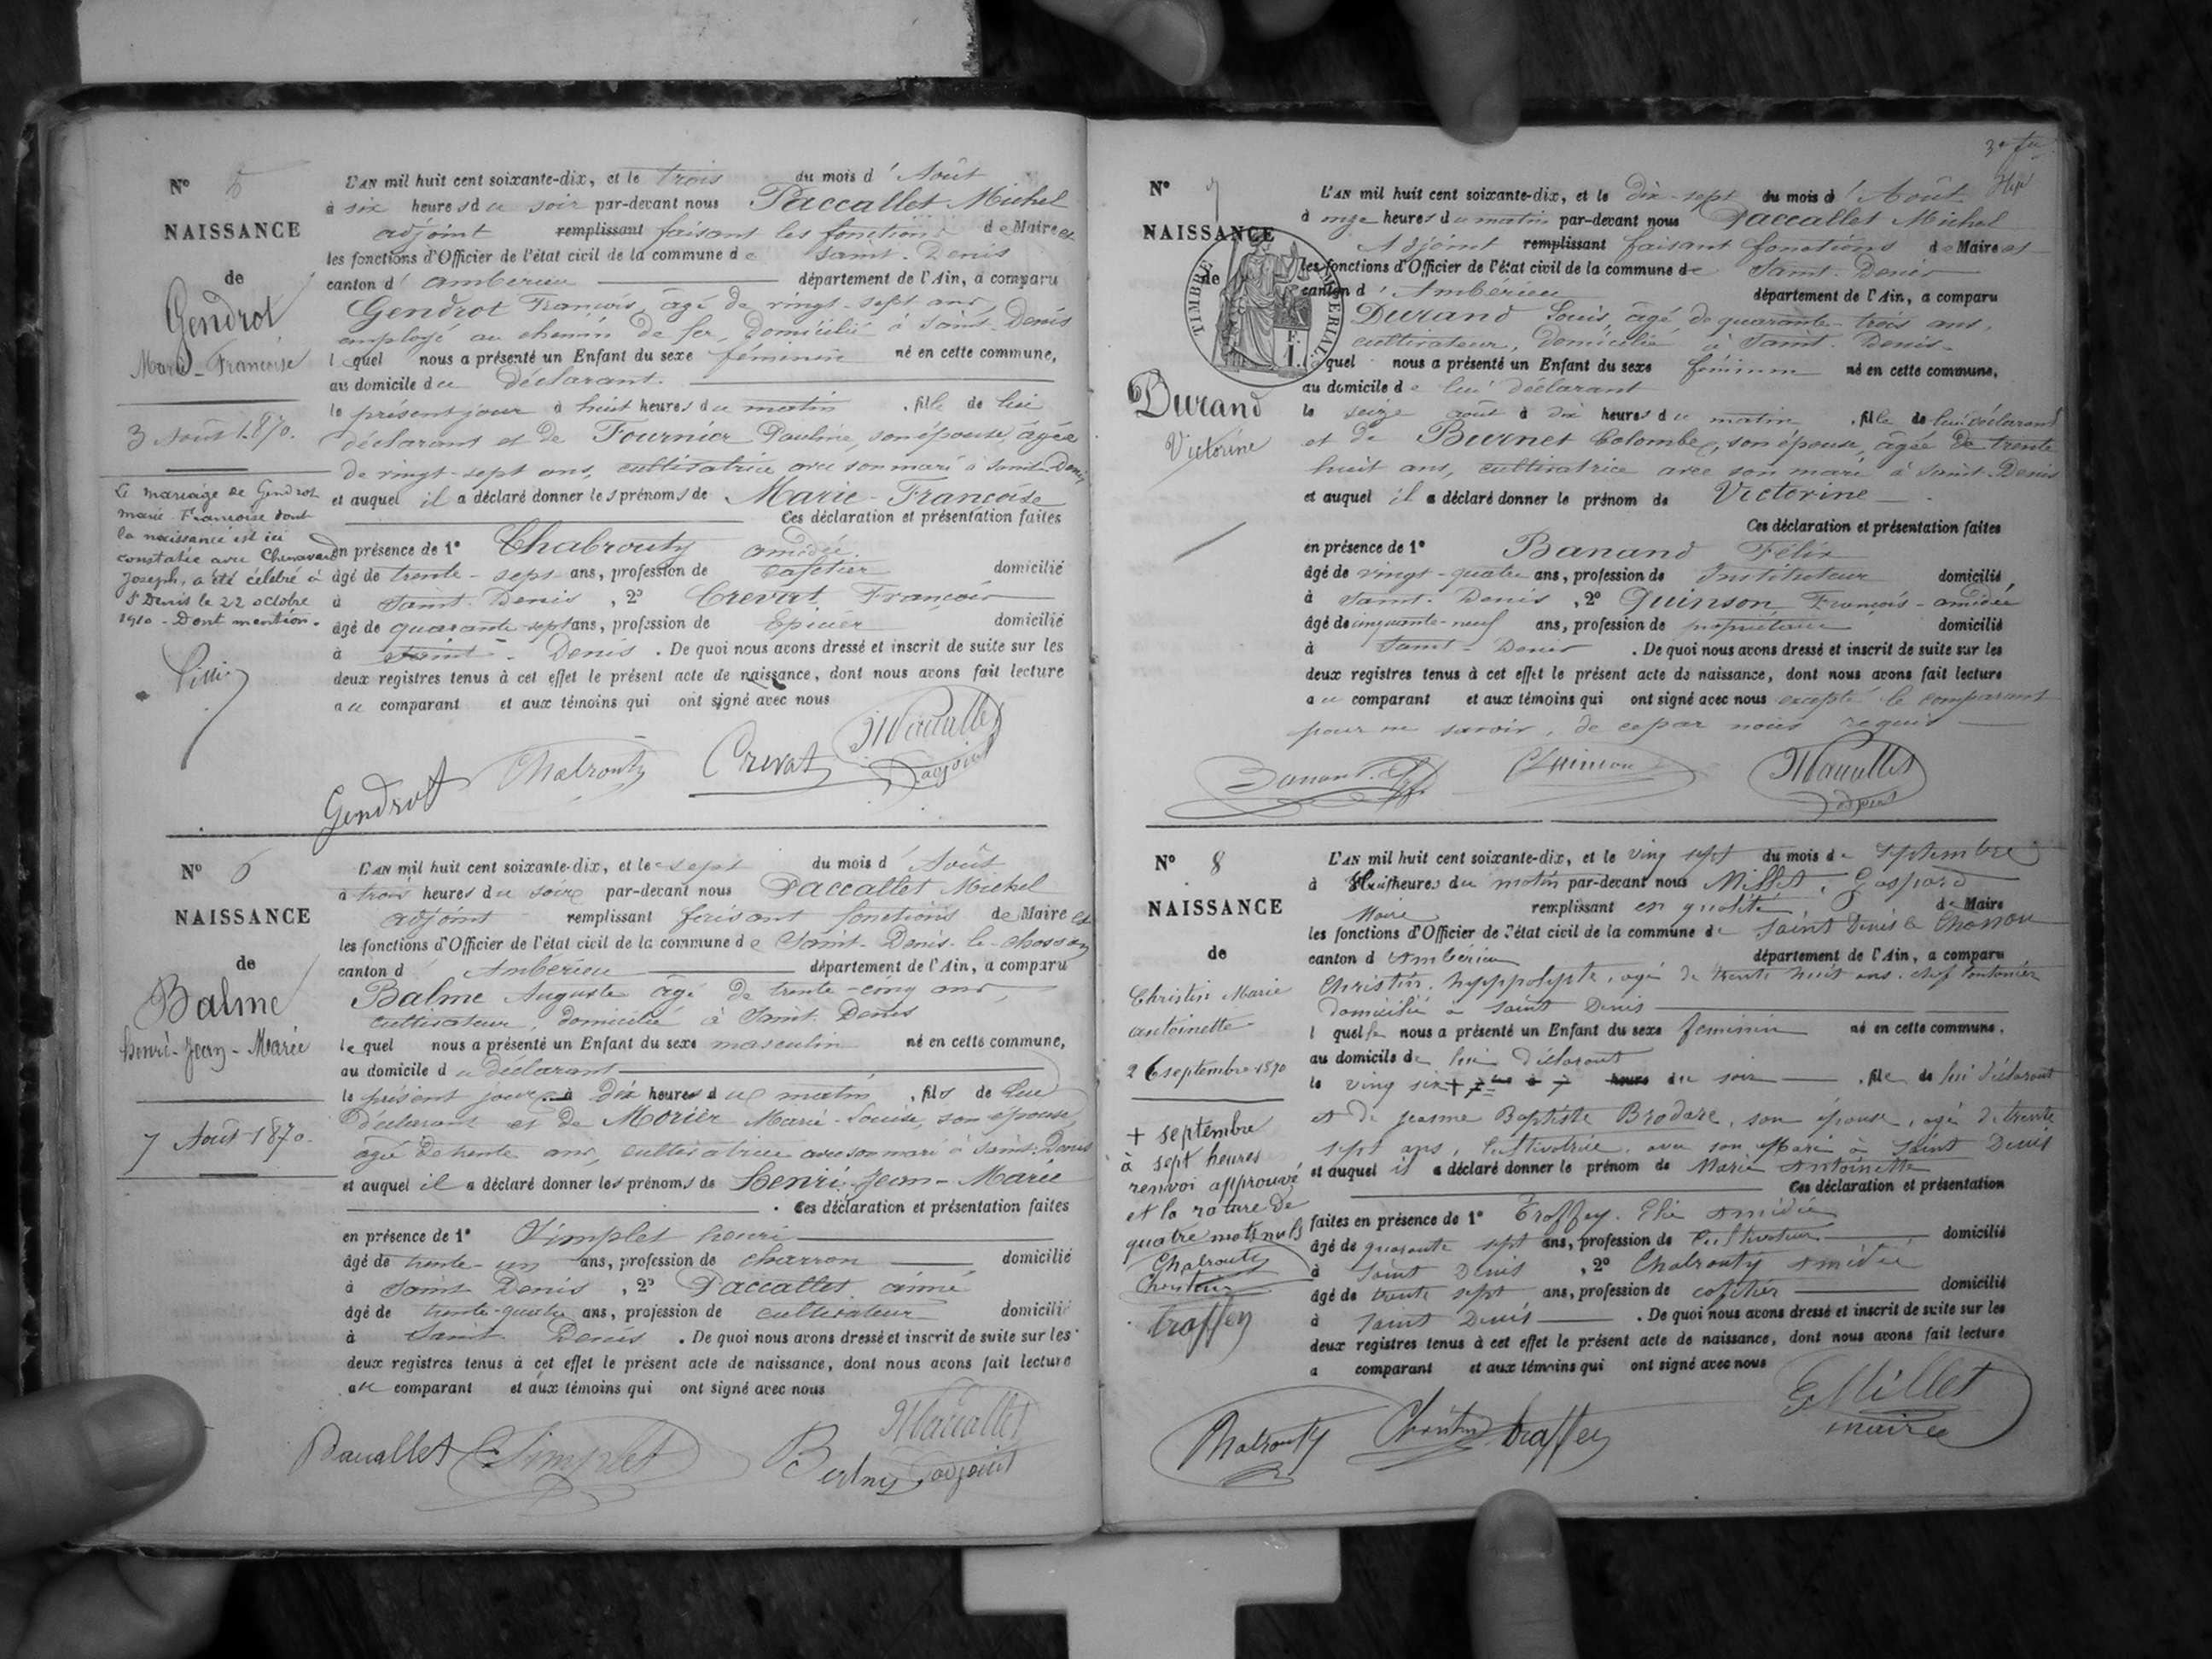 N° 5
NAISSANCE
de
Gendrot
Marie-Françoise
3 Août 1870.
Le mariage de Gendrot
marie Françoise dont
la naissance est ici
constatée avec Chenavard
Joseph, a été célébré à
St Denis le 22 octobre
1910 - Dont mention.
L'AN mil huit cent soixante-dix, et le trois du mois d'Août
à six heures du soir par-devant nous Paccallet Michel
adjoint remplissant faisant les fonctions de Maire et
les fonctions d'Officier de l'état civil de la commune de Saint-Denis
canton d'amberieu département de l'Ain, a comparu
Gendrot François, âgé de vingt-sept ans,
employé au chemin de fer, domicilié à Saint-Denis
lequel nous a présenté un Enfant du sexe féminin né en cette commune,
au domicile du déclarant.
le présent jour à huit heures du matin, fille de lui
déclarant et de Fournier Pauline, son épouse, âgée
de vingt-sept ans, cultivatrice avec son mari à Saint-Denis
et auquel il a déclaré donner les prénoms de Marie-Françoise
Ces déclaration et présentation faites
en présence de 1° Chabrouty amédée.
âgé de trente-sept ans, profession de cafetier domicilié
à Saint-Denis, 2° Crevat François
âgé de quarante-sept ans, profession de Epicier domicilié
à Saint-Denis. De quoi nous avons dressé et inscrit de suite sur les
deux registres tenus à cet effet le présent acte de naissance, dont nous avons fait lecture
au comparant et aux témoins qui ont signé avec nous
Gendrot Chabrouty Crevat MPaccallet
adjoint
N° 6
NAISSANCE
de
Balme
henri-Jean-Marie
7 Août 1870.
L'AN mil huit cent soixante-dix, et le sept du mois d'Août
à trois heures du soir par-devant nous Paccallet Michel
adjoint remplissant faisant fonctions de Maire et
les fonctions d'Officier de l'état civil de la commune de Saint-Denis-le-chosson
canton d'Ambérieu département de l'Ain, a comparu
Balme Auguste âgé de trente-cinq ans,
cultivateur, domicilié à Saint Denis
lequel nous a présenté un Enfant du sexe masculin né en cette commune,
au domicile du déclarant
le présent jour à dix heures du matin, fils de lui
déclarant et de Morier Marie-Louise, son épouse,
âgée de trente ans, cultivatrice avec son mari à Saint-Denis
et auquel il a déclaré donner les prénoms de henri-Jean-Marie
Ces déclaration et présentation faites
en présence de 1° Simplet henri
âgé de trente-un ans, profession de charron domicilié
à Saint Denis, 2° Paccallet aimé
âgé de trente-quatre ans, profession de cultivateur domicilié
à Saint Denis. De quoi nous avons dressé et inscrit de suite sur les
deux registres tenus à cet effet le présent acte de naissance, dont nous avons fait lecture
au comparant et aux témoins qui ont signé avec nous
Paccallet Simplet MPaccallet
adjoint
N° 7
NAISSANCE
de
TIMBRE IMPÉRIAL
Durand
Victorine
L'AN mil huit cent soixante-dix, et le dix-sept du mois d'Août
à onze heures du matin par-devant nous Paccallet Michel
Adjoint remplissant faisant fonctions de Maire et
les fonctions d'Officier de l'état civil de la commune de Saint-Denis
canton d'Ambérieu département de l'Ain, a comparu
Durand Louis, âgé de quarante-trois ans,
cultivateur, domicilié à Saint-Denis
lequel nous a présenté un Enfant du sexe féminin né en cette commune,
au domicile de lui déclarant
le seize août à dix heures du matin, fille de lui déclarant
et de Burnet Colombe, son épouse, âgée de trente
huit ans, cultivatrice avec son mari à Saint-Denis
et auquel il a déclaré donner le prénom de Victorine
Ces déclaration et présentation faites
en présence de 1° Banand Félix
âgé de vingt-quatre ans, profession de Instituteur domicilié,
à Saint-Denis, 2° Quinson François-amédée
âgé de cinquante-neuf ans, profession de propriétaire domicilié
à Saint-Denis. De quoi nous avons dressé et inscrit de suite sur les
deux registres tenus à cet effet le présent acte de naissance, dont nous avons fait lecture
au comparant et aux témoins qui ont signé avec nous excepté le comparant
pour ne savoir, de ce par nous requis
Banand Quinson MPaccallet
adjoint
N° 8
NAISSANCE
de
Christin Marie
antoinette
26 septembre 1870
+ septembre
à sept heures
renvoi approuvé
et la rature de
quatre mots nuls
Chabrouty
Christin
troffey
L'AN mil huit cent soixante-dix, et le ving sept du mois de septembre
à Huit heures du matin par-devant nous Millet, Gaspard
Maire remplissant en qualité de Maire
les fonctions d'Officier de l'état civil de la commune de Saint Denis le Chosson
canton d'Ambérieu département de l'Ain, a comparu
Christin, hyppolypte, agé de trente huit ans, chef cantonier
domicilié à Saint Denis
lequel nous a présenté un Enfant du sexe feminin né en cette commune,
au domicile de lui déclarant
le ving six + heures du soir, fille de lui déclarant
et de jeanne Baptiste Brodare, son épouse, agé de trente
sept ans, Cultivatrice, avec son Mari à Saint Denis
et auquel il a déclaré donner le prénom de Marie Antoinette
Ces déclaration et présentation
faites en présence de 1° Troffey. Elie Amédée
âgé de quarante sept ans, profession de Cultivateur domicilié
à Saint Denis, 2° Chabrouty Amédée
âgé de trente sept ans, profession de cafetier domicilié
à Saint Denis. De quoi nous avons dressé et inscrit de suite sur les
deux registres tenus à cet effet le présent acte de naissance, dont nous avons fait lecture
a comparant et aux témoins qui ont signé avec nous
Chabrouty Christin troffey G Millet
maire